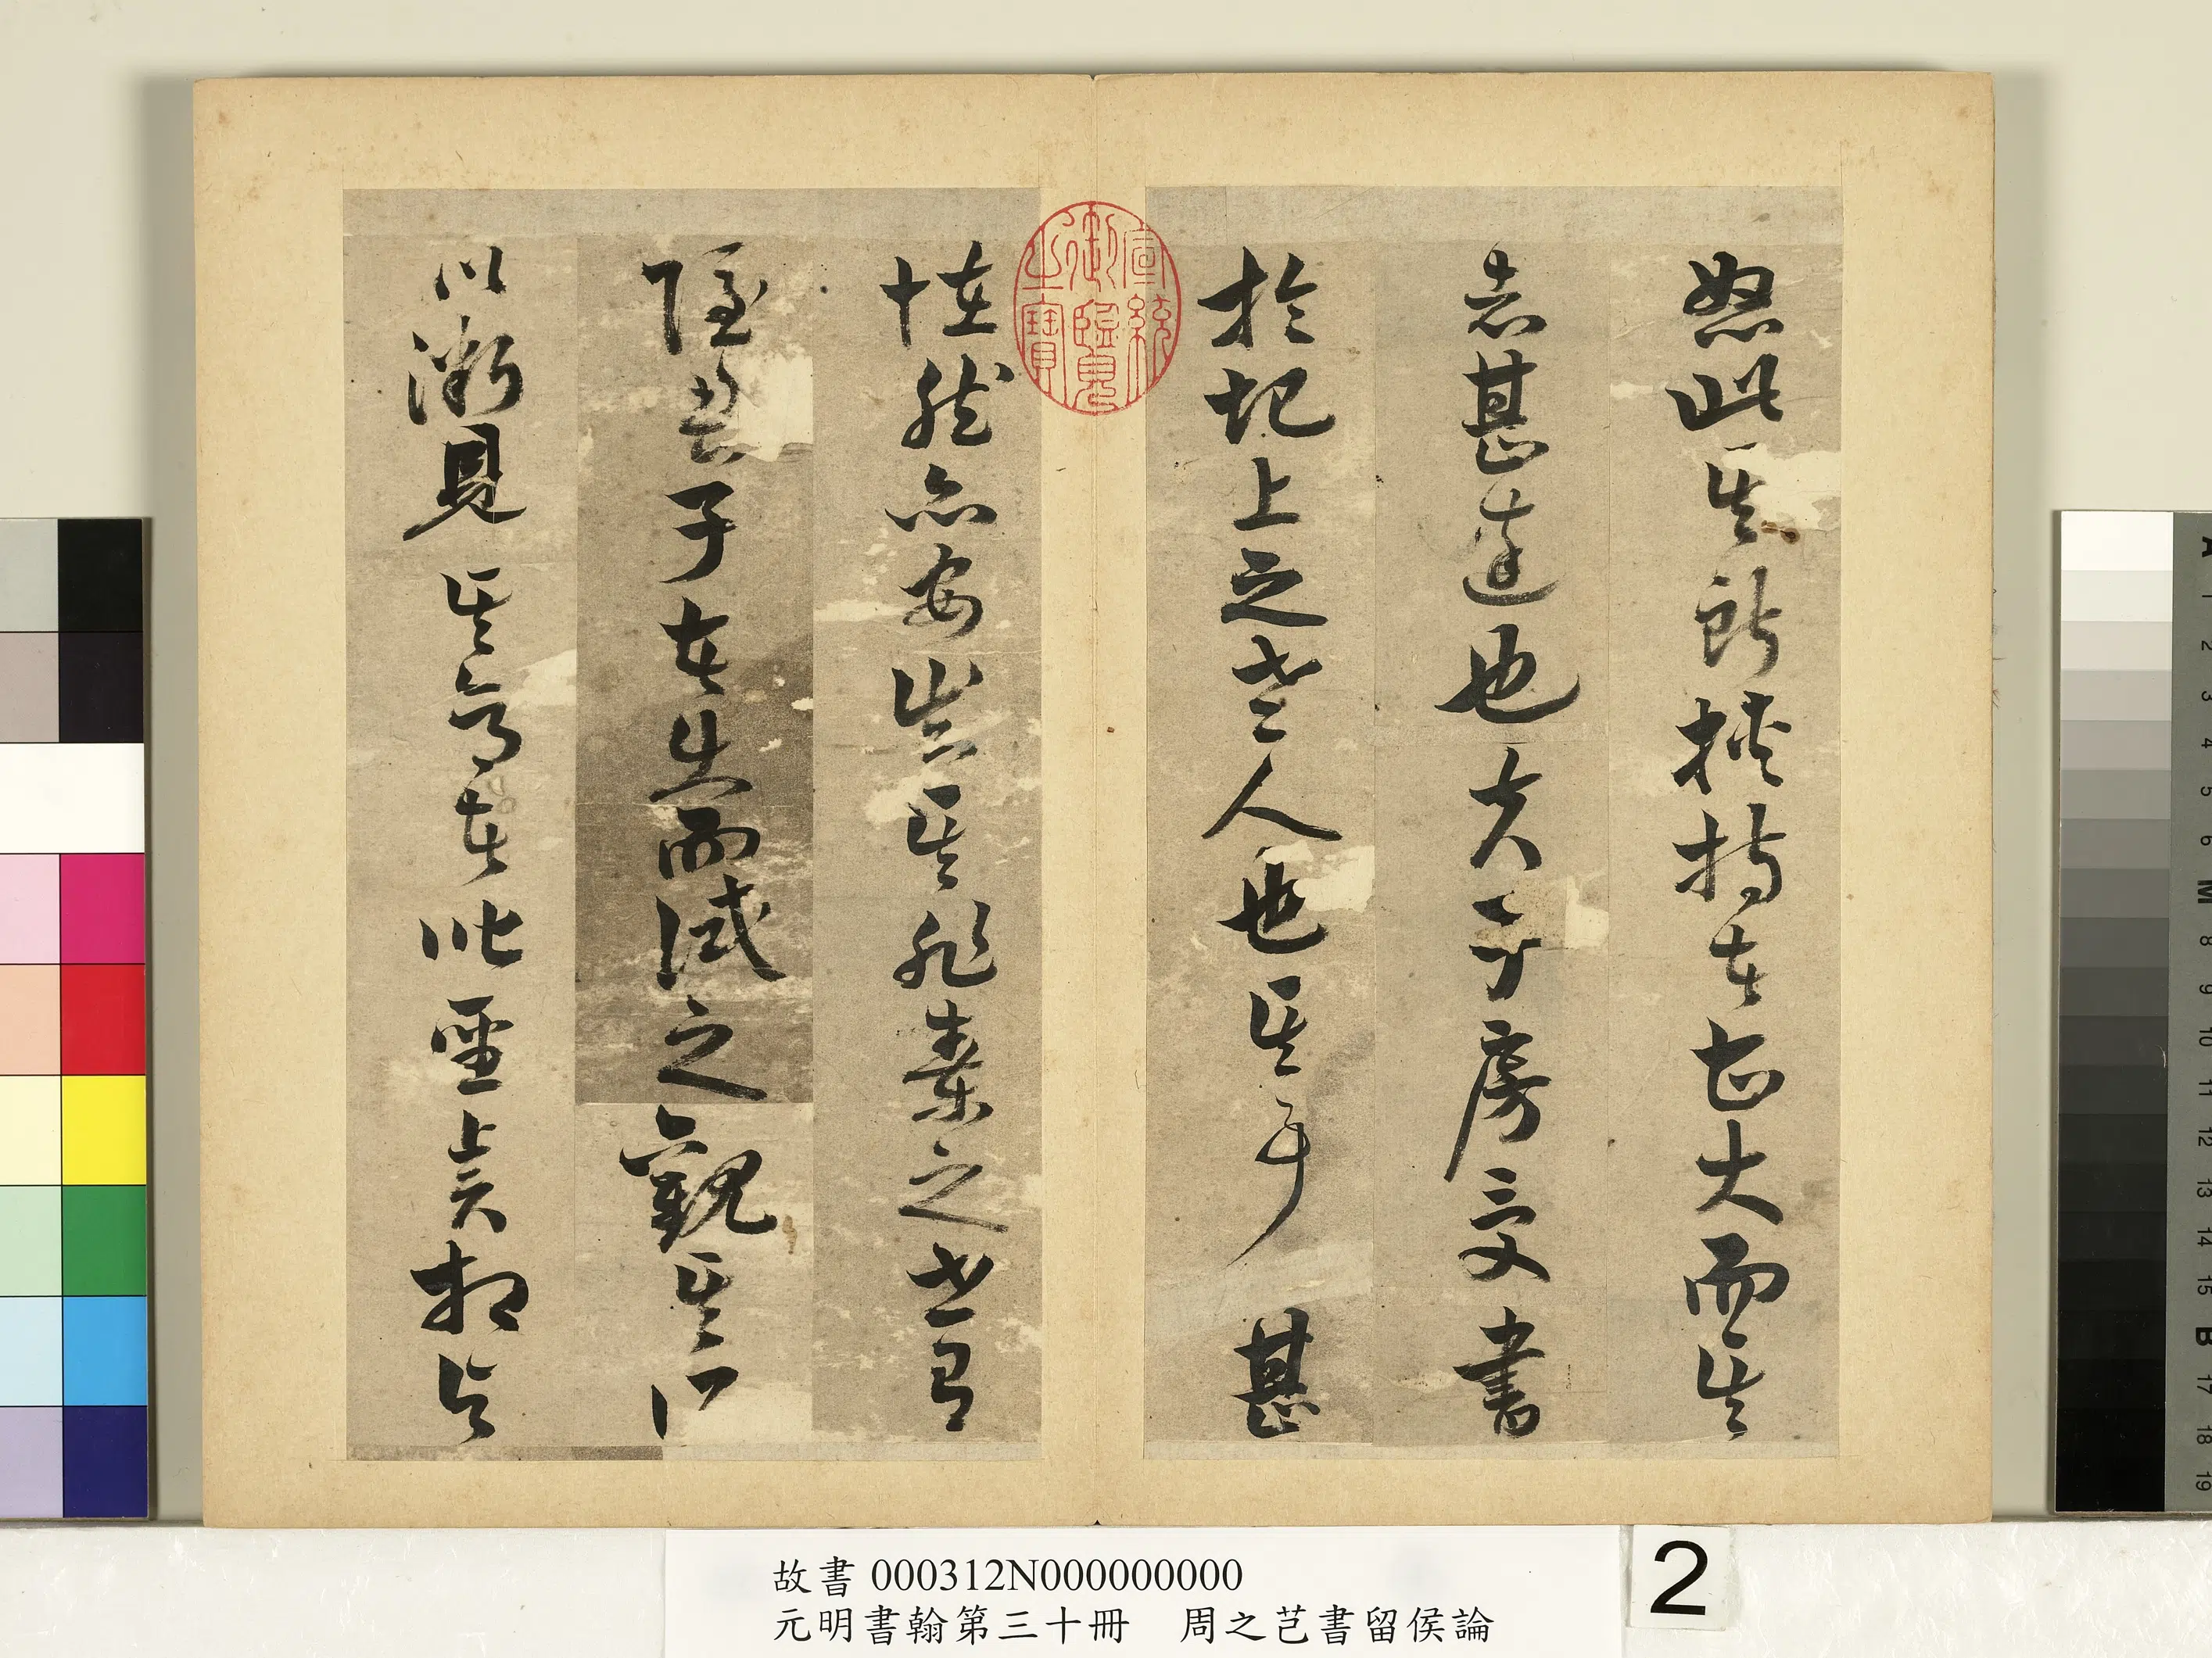 怒此其所挾持者甚大而其
志甚遠也夫子房受書
於圯上之老人也其事甚
怪然亦安豈其非秦之世有
隱君子者出而試之觀其所
以微見其意者皆聖賢相與
宣統御覽之寶
故書 000312N000000000
元明書翰第三十冊 周之芑書留侯論
2
A 1 2 3 4 5 6 M 8 9 10 11 12 13 14 15 B 17 18 19